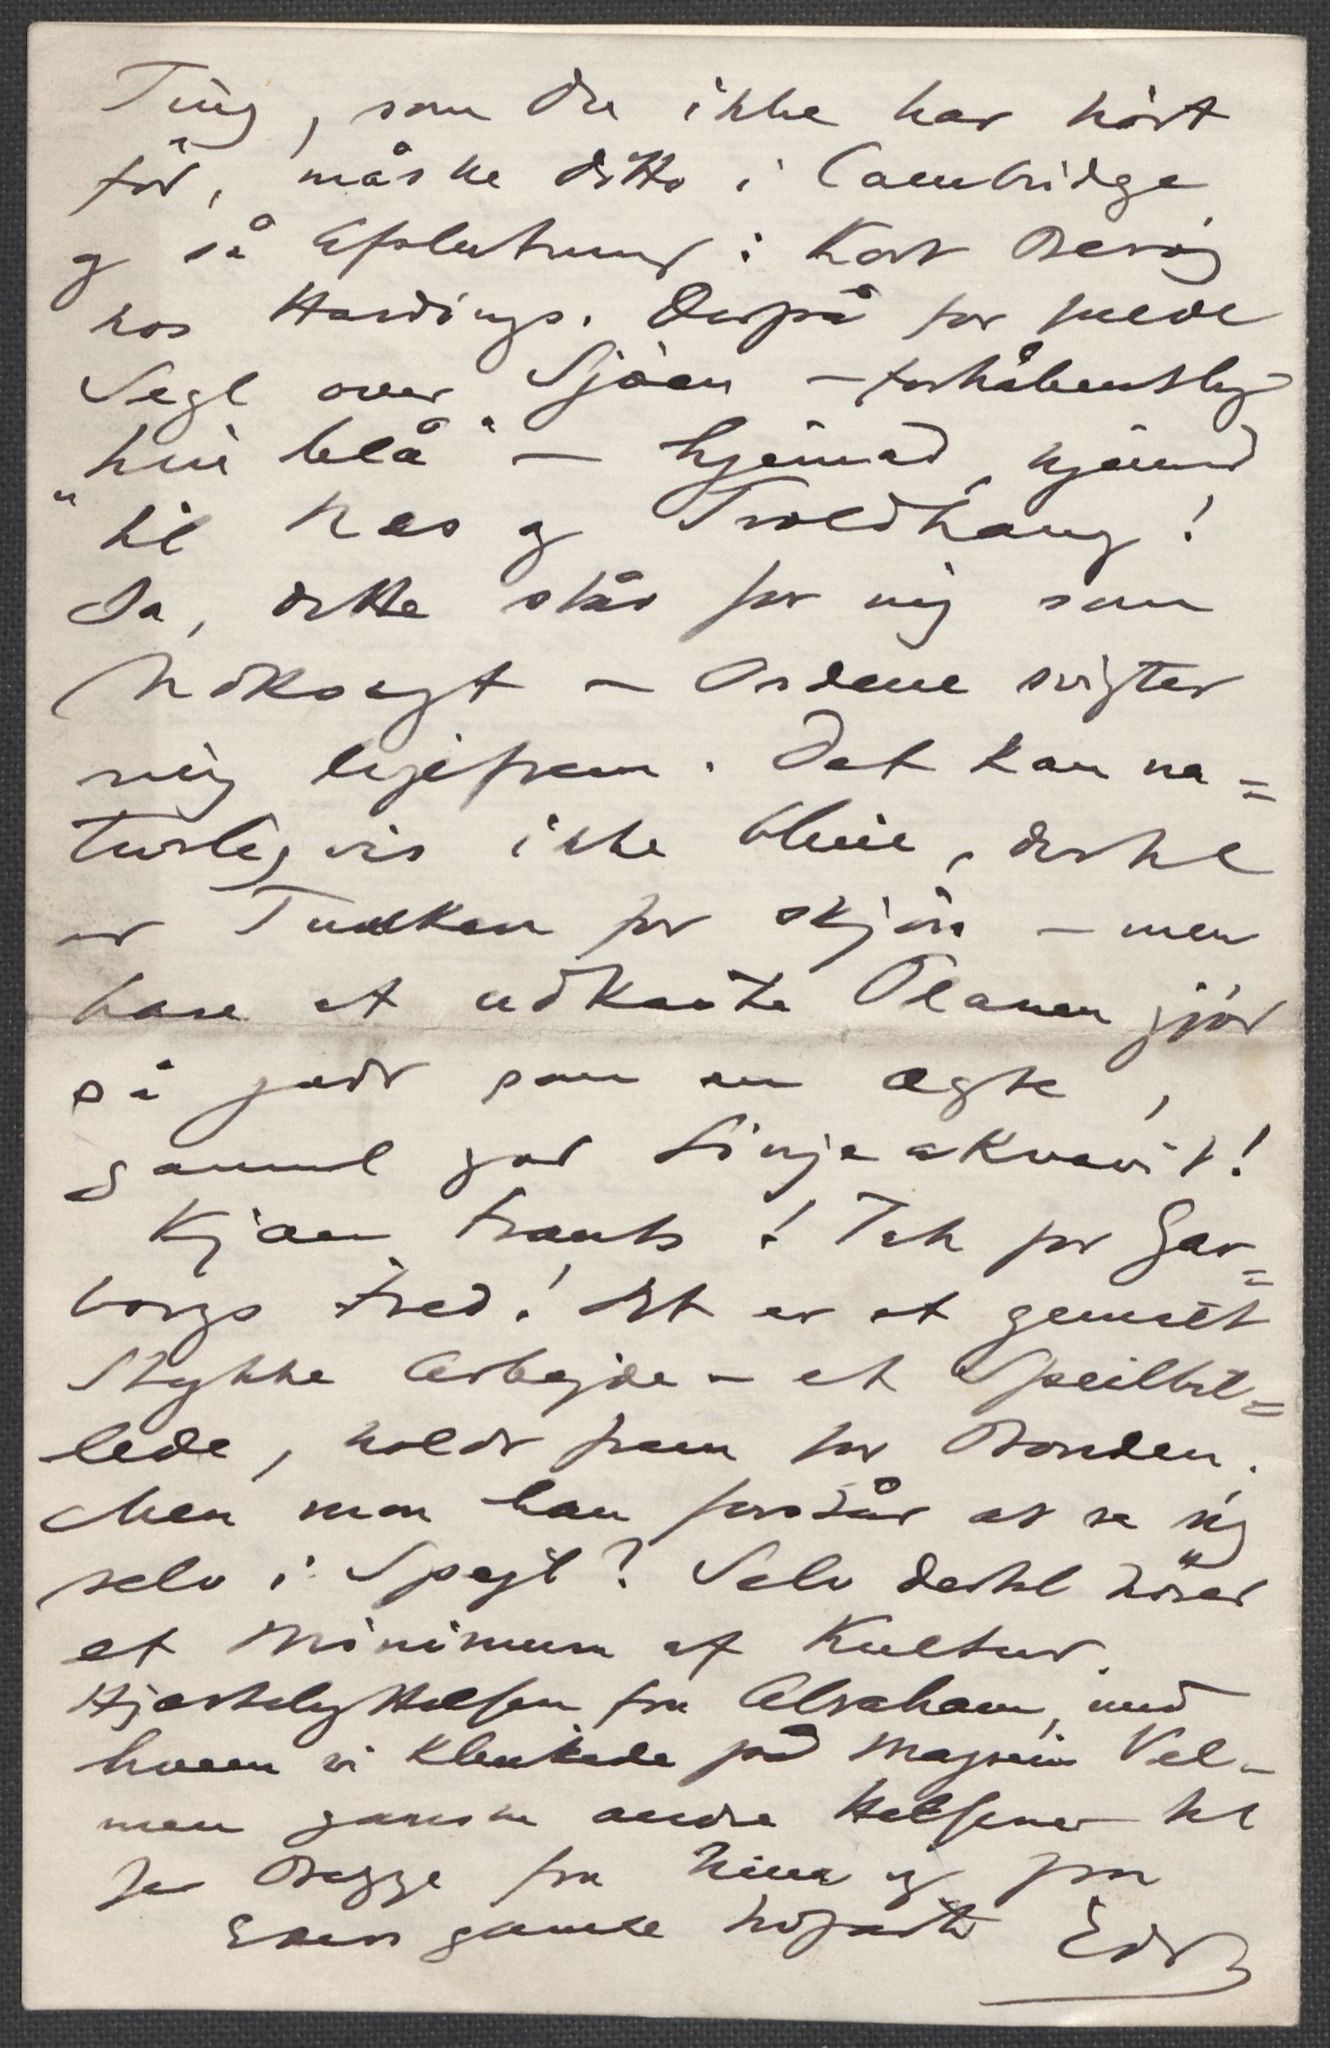 Ting, som Du ikke har hørt
før, måske ditto i Cambridge
og så Afslutning: Kort Besøg
hos Hardings. Derpå for fulde
Segl over Sjøen – forhåbentlig
"hin blå" – hjemad, hjemad
til Næs og Troldhaug!
Ja, dette står for mig som
– Ordene svigter
mig ligefrem. Det kan na=
turligvis ikke blive, dertil
er Tanken for skjøn – men
bare at udkaste Planen gjør
så godt som en ægte,
gammel god Linjeakvavit!
Kjære Frants! Tak for Gar=
borgs Fred! Det er et genialt
Stykke Arbejde – et Speilbil=
lede, holdt frem for Bonden.
Men mon han forstår at se sig
selv i Spejl? Selv dertil hører
et Minimum af Kultur.
Hjertelig Hilsen fra Abraham, med
hvem vi klinkede på Magsein Vel–
men ganske andre Hilsener til
Jer Begge fra Nina og fra
Eders gamle Edv